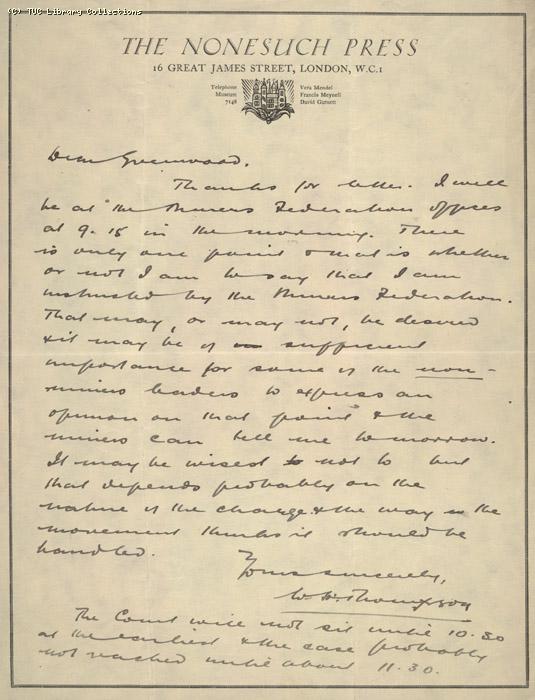 (C) TUC Library Collections
THE NONESUCH PRESS
16 GREAT JAMES STREET, LONDON, W.C.1
Telephone
Museum
7148
Vera Mendel
Francis Meynell
David Garnett
Dear Greenwood.
Thanks for letter. I will
be at the Miners Federation offices
at 9.15 in the morning. There
is only one point & that is whether
or not I am to say that I am
instructed by the Miners Federation.
That may, or may not, be desired
& it may be of sufficient
importance for some of the non-
miners leaders to express an
opinion on that point & the
miners can tell me tomorrow.
It may be wisest not to but
that depends probably on the
nature of the charge & the way the
movement thinks it should be
handled.
Yours sincerely,
W. H. Thompson
The Court will not sit until 10.30
at the earliest & the case probably
not reached until about 11.30.